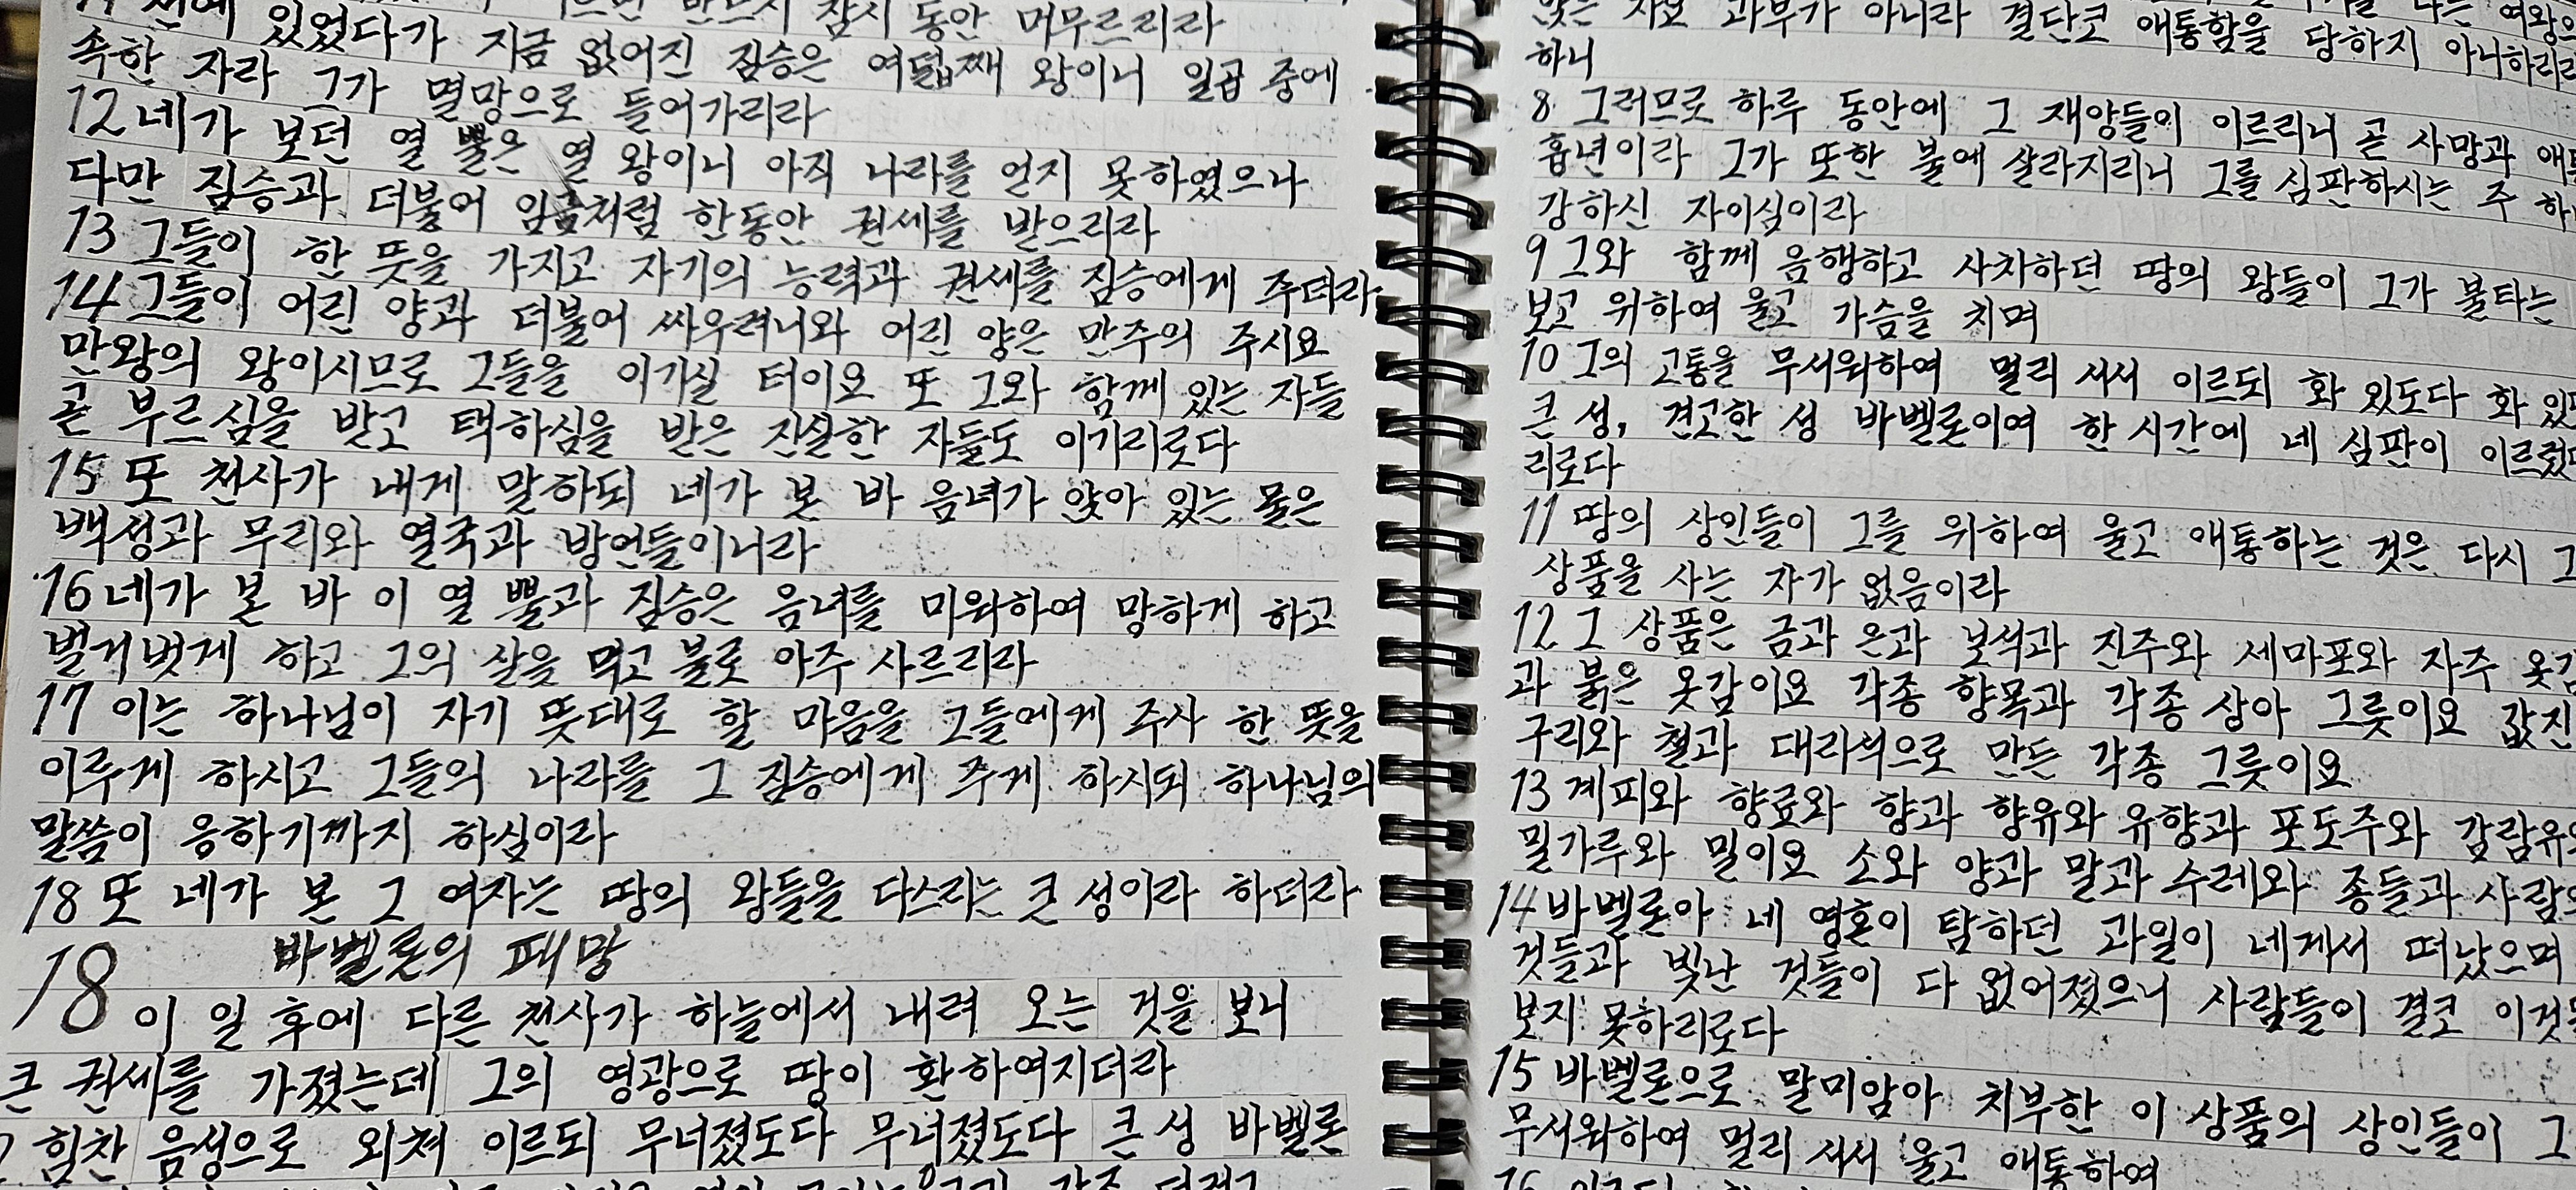 있었다가 지금 없어진 짐승은 여덟째 왕이니 일곱 중에
잠시 동안 머무르리라
속한 자라 그가 멸망으로 들어가리라
12 네가 보던 열 뿔은 열 왕이니 아직 나라를 얻지 못하였으나
다만 짐승과 더불어 임금처럼 한동안 권세를 받으리라
13 그들이 한 뜻을 가지고 자기의 능력과 권세를 짐승에게 주더라
14 그들이 어린 양과 더불어 싸우려니와 어린 양은 만주의 주시요
만왕의 왕이시므로 그들을 이기실 터이요 또 그와 함께 있는 자들
곧 부르심을 받고 택하심을 받은 진실한 자들도 이기리로다
15 또 천사가 내게 말하되 네가 본 바 음녀가 앉아 있는 물은
백성과 무리와 열국과 방언들이니라
16 네가 본 바 이 열 뿔과 짐승은 음녀를 미워하여 망하게 하고
벌거벗게 하고 그의 살을 먹고 불로 아주 사르리라
17 이는 하나님이 자기 뜻대로 할 마음을 그들에게 주사 한 뜻을
이루게 하시고 그들의 나라를 그 짐승에게 주게 하시되 하나님의
말씀이 응하기까지 하심이라
18 또 네가 본 그 여자는 땅의 왕들을 다스리는 큰 성이라 하더라
바벨론의 패망
18 이 일 후에 다른 천사가 하늘에서 내려 오는 것을 보니
큰 권세를 가졌는데 그의 영광으로 땅이 환하여지더라
힘찬 음성으로 외쳐 이르되 무너졌도다 무너졌도다 큰 성 바벨론
과부가 아니라 결단코 애통함을 당하지 아니하리라
하니
8 그러므로 하루 동안에 그 재앙들이 이르리니 곧 사망과
흉년이라 그가 또한 불에 살라지리니 그를 심판하시는 주
강하신 자이심이라
9 그와 함께 음행하고 사치하던 땅의 왕들이 그가 불타는
보고 위하여 울고 가슴을 치며
10 그의 고통을 무서워하여 멀리 서서 이르되 화 있도다 화
큰 성, 견고한 성 바벨론이여 한 시간에 네 심판이
리로다
11 땅의 상인들이 그를 위하여 울고 애통하는 것은 다시
상품을 사는 자가 없음이라
12 그 상품은 금과 은과 보석과 진주와 세마포와 자주
과 붉은 옷감이요 각종 향목과 각종 상아 그릇이요 값진
구리와 철과 대리석으로 만든 각종 그릇이요
13 계피와 향료와 향과 향유와 유향과 포도주와
밀가루와 밀이요 소와 양과 말과 수레와 종들과
14 바벨론아 네 영혼이 탐하던 과일이 네게서 떠났으며
것들과 빛난 것들이 다 없어졌으니 사람들이 결코
보지 못하리로다
15 바벨론으로 말미암아 치부한 이 상품의 상인들이 그
무서워하여 멀리 서서 울고 애통하여